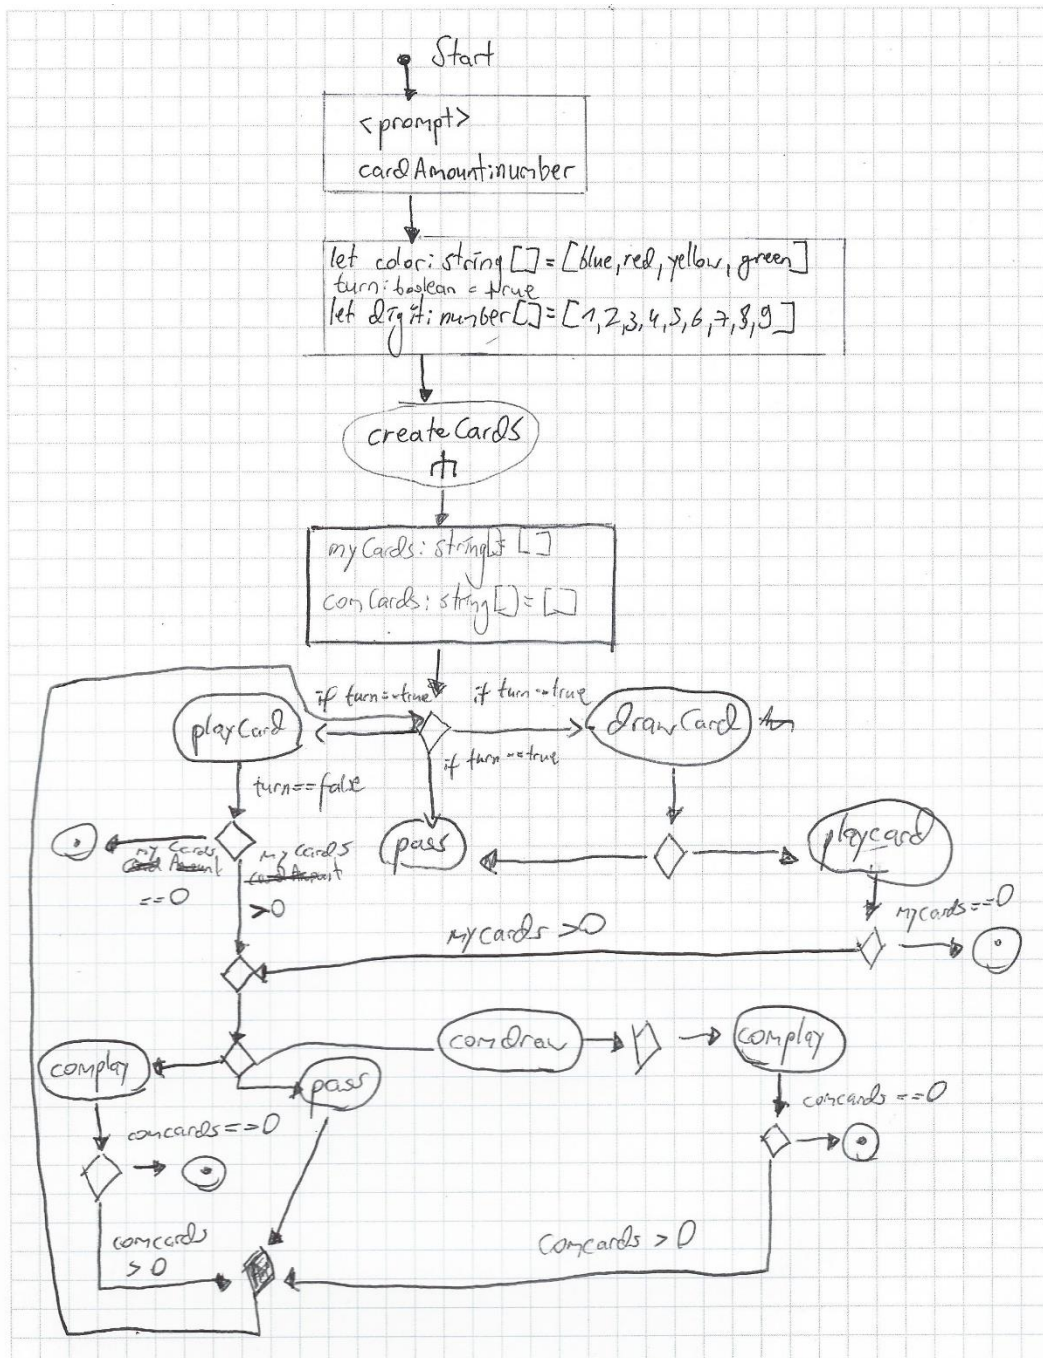 Start
<prompt>
cardAmount:number
let color: string[] = [blue, red, yellow, green]
turn: boolean = true
let digit: number[] = [1,2,3,4,5,6,7,8,9]
createCards
myCards: string[] = []
comCards: string[] = []
if turn==true
if turn==true
playCard
drawCard
if turn==true
turn==false
pass
playcard
my Cards
my cards
==0
>0
mycards==0
mycards >0
complay
comdraw
complay
pass
comcards==0
comcards==0
comcards
>0
Comcards >0